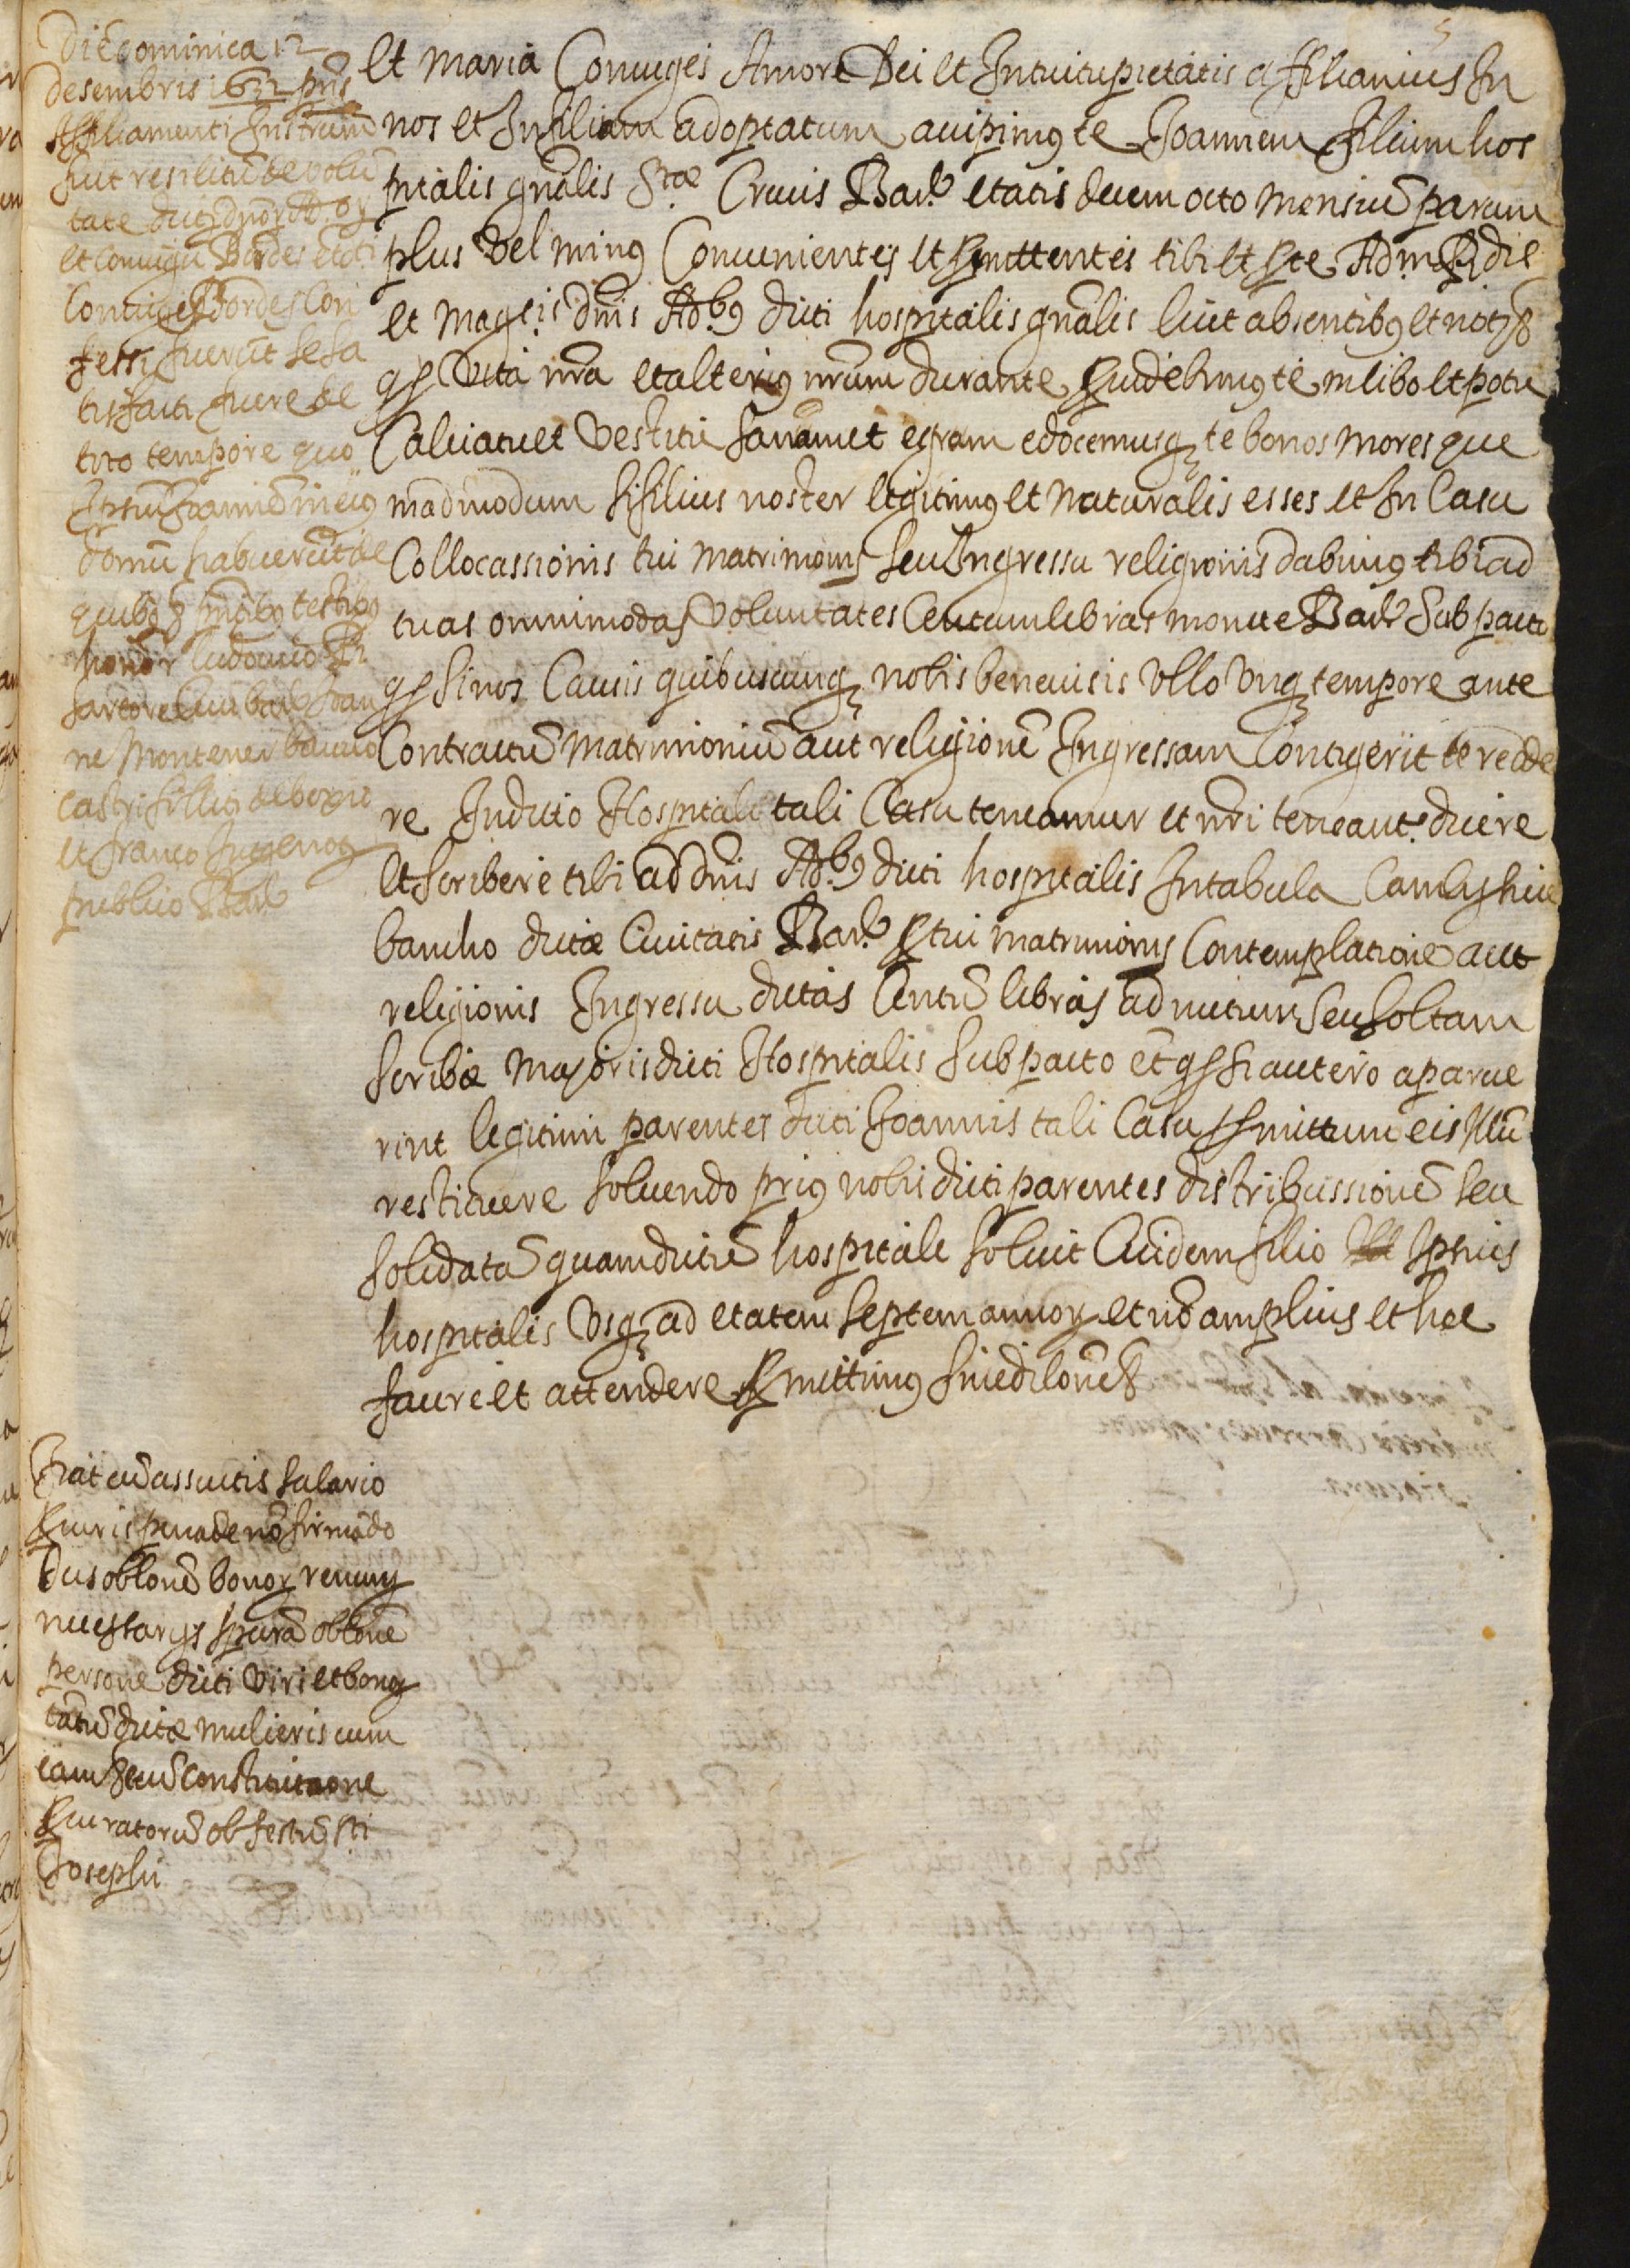 Die dominica 12
desembris 1632 pn̄s
Affiliamenti Instrum̄
fuit resilitū de volū
tate dictor dnor Ad.or
et coniugū Bordes et dicti
coniuges Bordes con
fessi fuerūt se sa
tisfacti fuere de
toto tempore quo
Ipsum Joannē in eius
domū habuerūt de
quibus &
honor Ludovico
sartore cive bar Joan
ne Montener
castri
et franco
publico Bar
et Maria Coniuges Amore Dei et Intuitu pietatis affiliamus In
nos et In filium adoptatum accipimus te Joannem filium hos
pitalis gnālis Stæ Crucis Bar. etatis decem octo mensiū parum
plus vel minus Convenientes et promittentes tibi et pro te Ad.m Rdis
et Magcis dnīs Ad.bus dicti hospitalis gnālis licet absentibus et not. &
qs vita nrā et alterius nrūm durante providebimus te in cibo et potu
Calciatu et Vestitu sanum et egrum edocemusq te bonos mores que
madmodum si filius noster legitimus et naturalis esses et In Casu
Collocassionis tui matrimonij seu Ingressu religionis dabimus tibi ad
tuas omnimodas voluntates Centum libras monete Bar. Sub pacto
qs si nos Causis quibuscunq nobis benevisis Ullo Unq tempore ante
Contractū matrimoniū aut religionē Ingressam Contigerit te redde
re In dicto Hospitali tali Casu teneamur et nrī teneant.r dicere
et scribere tibi ad dnīs Ad.bus dicti hospitalis In tabula Cambij sive
bancho dictæ Civitatis Bar. pro tui matrimonij Contemplatione aut
religionis Ingressu dictas Centū libras ad nutum seu soltam
scribæ majoris dicti Hospitalis sub pacto et qs si autero aparue
rint legitimi parentes dicti Joannis tali Casu promittimus eis Illū
restituere solvendo prius nobis dicti parentes distribussionē seu
solidatā quam dictū hospitale solvit Cuidem filio Ipsius
hospitalis Usq ad etatem septem annor et nō amplius et hec
facere et attendere promittimus sine dilone &
Fiat cū assuetis salario
procuris pena de nō firmādo
Jus oblonē bonor renuns
necessarijs
persone dicti viri et bonor
tantū dictæ mulieris cum
Jam secū constitutione
procuratorū ob festū sti
Josephi